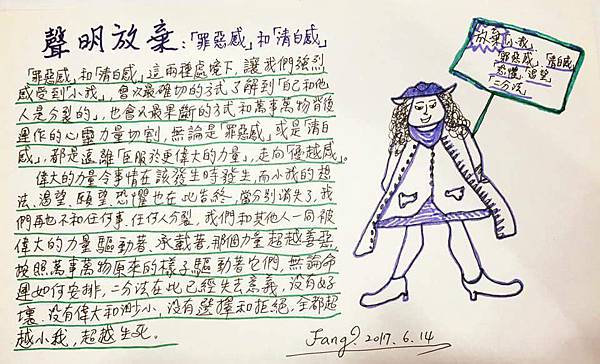 聲明放棄：「罪惡感」和「清白感」
「罪惡感」和「清白感」這兩種處境下，讓我們強烈
感受到「小我」，會以最確切的方式了解到「自己和他
人是分裂的」，也會以最果斷的方式和萬事萬物背後
運作的心靈力量切割，無論是「罪惡感」或是「清白
感」，都是遠離「臣服於更偉大的力量」，走向「優越感」。
偉大的力量令事情在該發生時發生，而小我的想
法、渴望、願望、恐懼也在此告終，當分別消失了，我
們再也不和任何事、任何人分裂，我們和其他人一同被
偉大的力量驅動著、承載著，那個力量超越善惡，
按照萬事萬物原來的樣子驅動著它們，無論命
運如何安排，二分法在此已經失去意義，沒有好
壞、沒有偉大和渺小，沒有選擇和拒絕，全都超
越小我，超越生死。
放棄「小我」
「罪惡感」、「清白感」
「恐懼」「渴望」
二分法。
Fang 2017.6.14